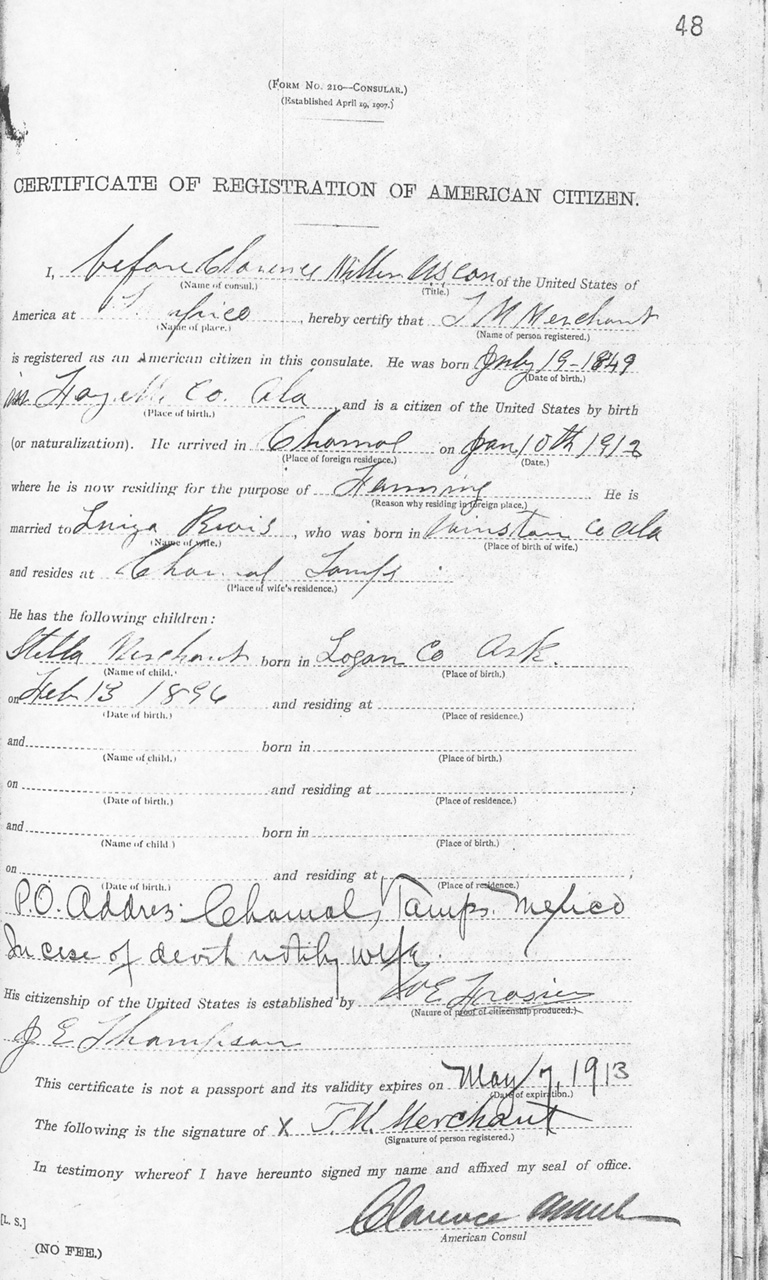 48
(FORM NO. 210—CONSULAR.)
(Established April 19, 1907.)
CERTIFICATE OF REGISTRATION OF AMERICAN CITIZEN.
I, before Clarence of the United States of
(Name of consul.) (Title.)
America at , hereby certify that J M Merchant
(Name of place.) (Name of person registered.)
is registered as an American citizen in this consulate. He was born July 19-1849
(Date of birth.)
in Co. Ala , and is a citizen of the United States by birth
(Place of birth.)
(or naturalization). He arrived in Chamal on Jan 10th 1912
(Place of foreign residence.) (Date.)
where he is now residing for the purpose of Farming . He is
(Reason why residing in foreign place.)
married to , who was born in Winston Co Ala
(Name of wife.) (Place of birth of wife.)
and resides at Chamal Tamps
(Place of wife's residence.)
He has the following children:
Stella Merchant born in Logan Co Ark.
(Name of child.) (Place of birth.)
on Feb 13 1896 and residing at ;
(Date of birth.) (Place of residence.)
and born in
(Name of child.) (Place of birth.)
on and residing at ;
(Date of birth.) (Place of residence.)
and born in
(Name of child.) (Place of birth.)
on and residing at ;
(Date of birth.) (Place of residence.)
P.O. Addres: Chamal, Tamps. Mexico
In case of death notify wife.
His citizenship of the United States is established by W E Frasier
(Nature of proof of citizenship produced.)
J E Thompson
This certificate is not a passport and its validity expires on May 7, 1913
(Date of expiration.)
The following is the signature of X J. M. Merchant
(Signature of person registered.)
In testimony whereof I have hereunto signed my name and affixed my seal of office.
Clarence
American Consul
[L. S.]
(NO FEE.)